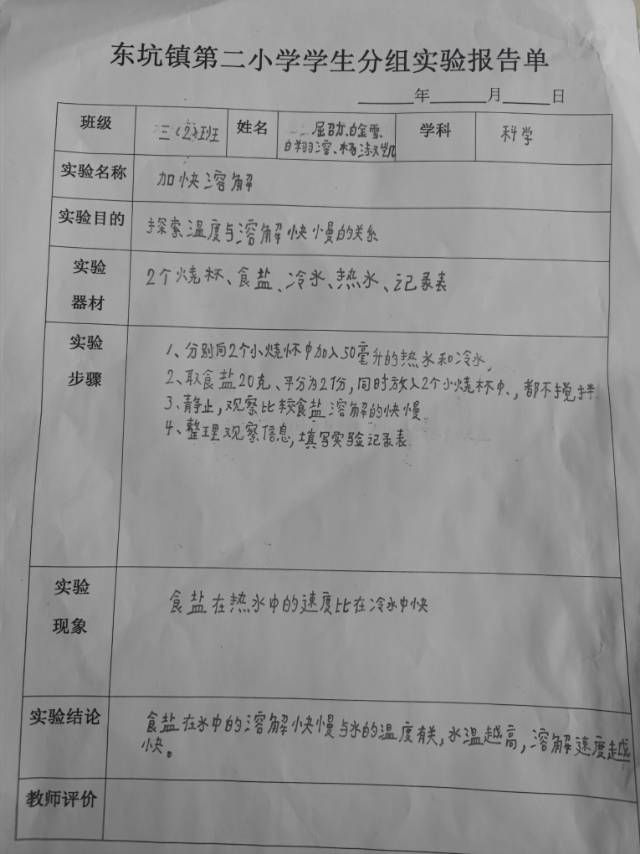 东坑镇第二小学学生分组实验报告单
年 月 日
班级 三(2)班 姓名 屈召欣、白金雪、 学科 科学
白翔溶、杨凯
实验名称 加快溶解
实验目的 探索温度与溶解快慢的关系
实验器材 2个烧杯、食盐、冷水、热水、记录表
实验步骤 1、分别向2个小烧杯中加入50毫升的热水和冷水,
2、取食盐20克、平分为2份,同时放入2个小烧杯中、,都不搅拌.
3、静止,观察比较食盐溶解的快慢.
4、整理观察信息,填写实验记录表
实验现象 食盐在热水中的速度比在冷水中快
实验结论 食盐在水中的溶解快慢与水的温度有关,水温越高,溶解速度越
快。
教师评价